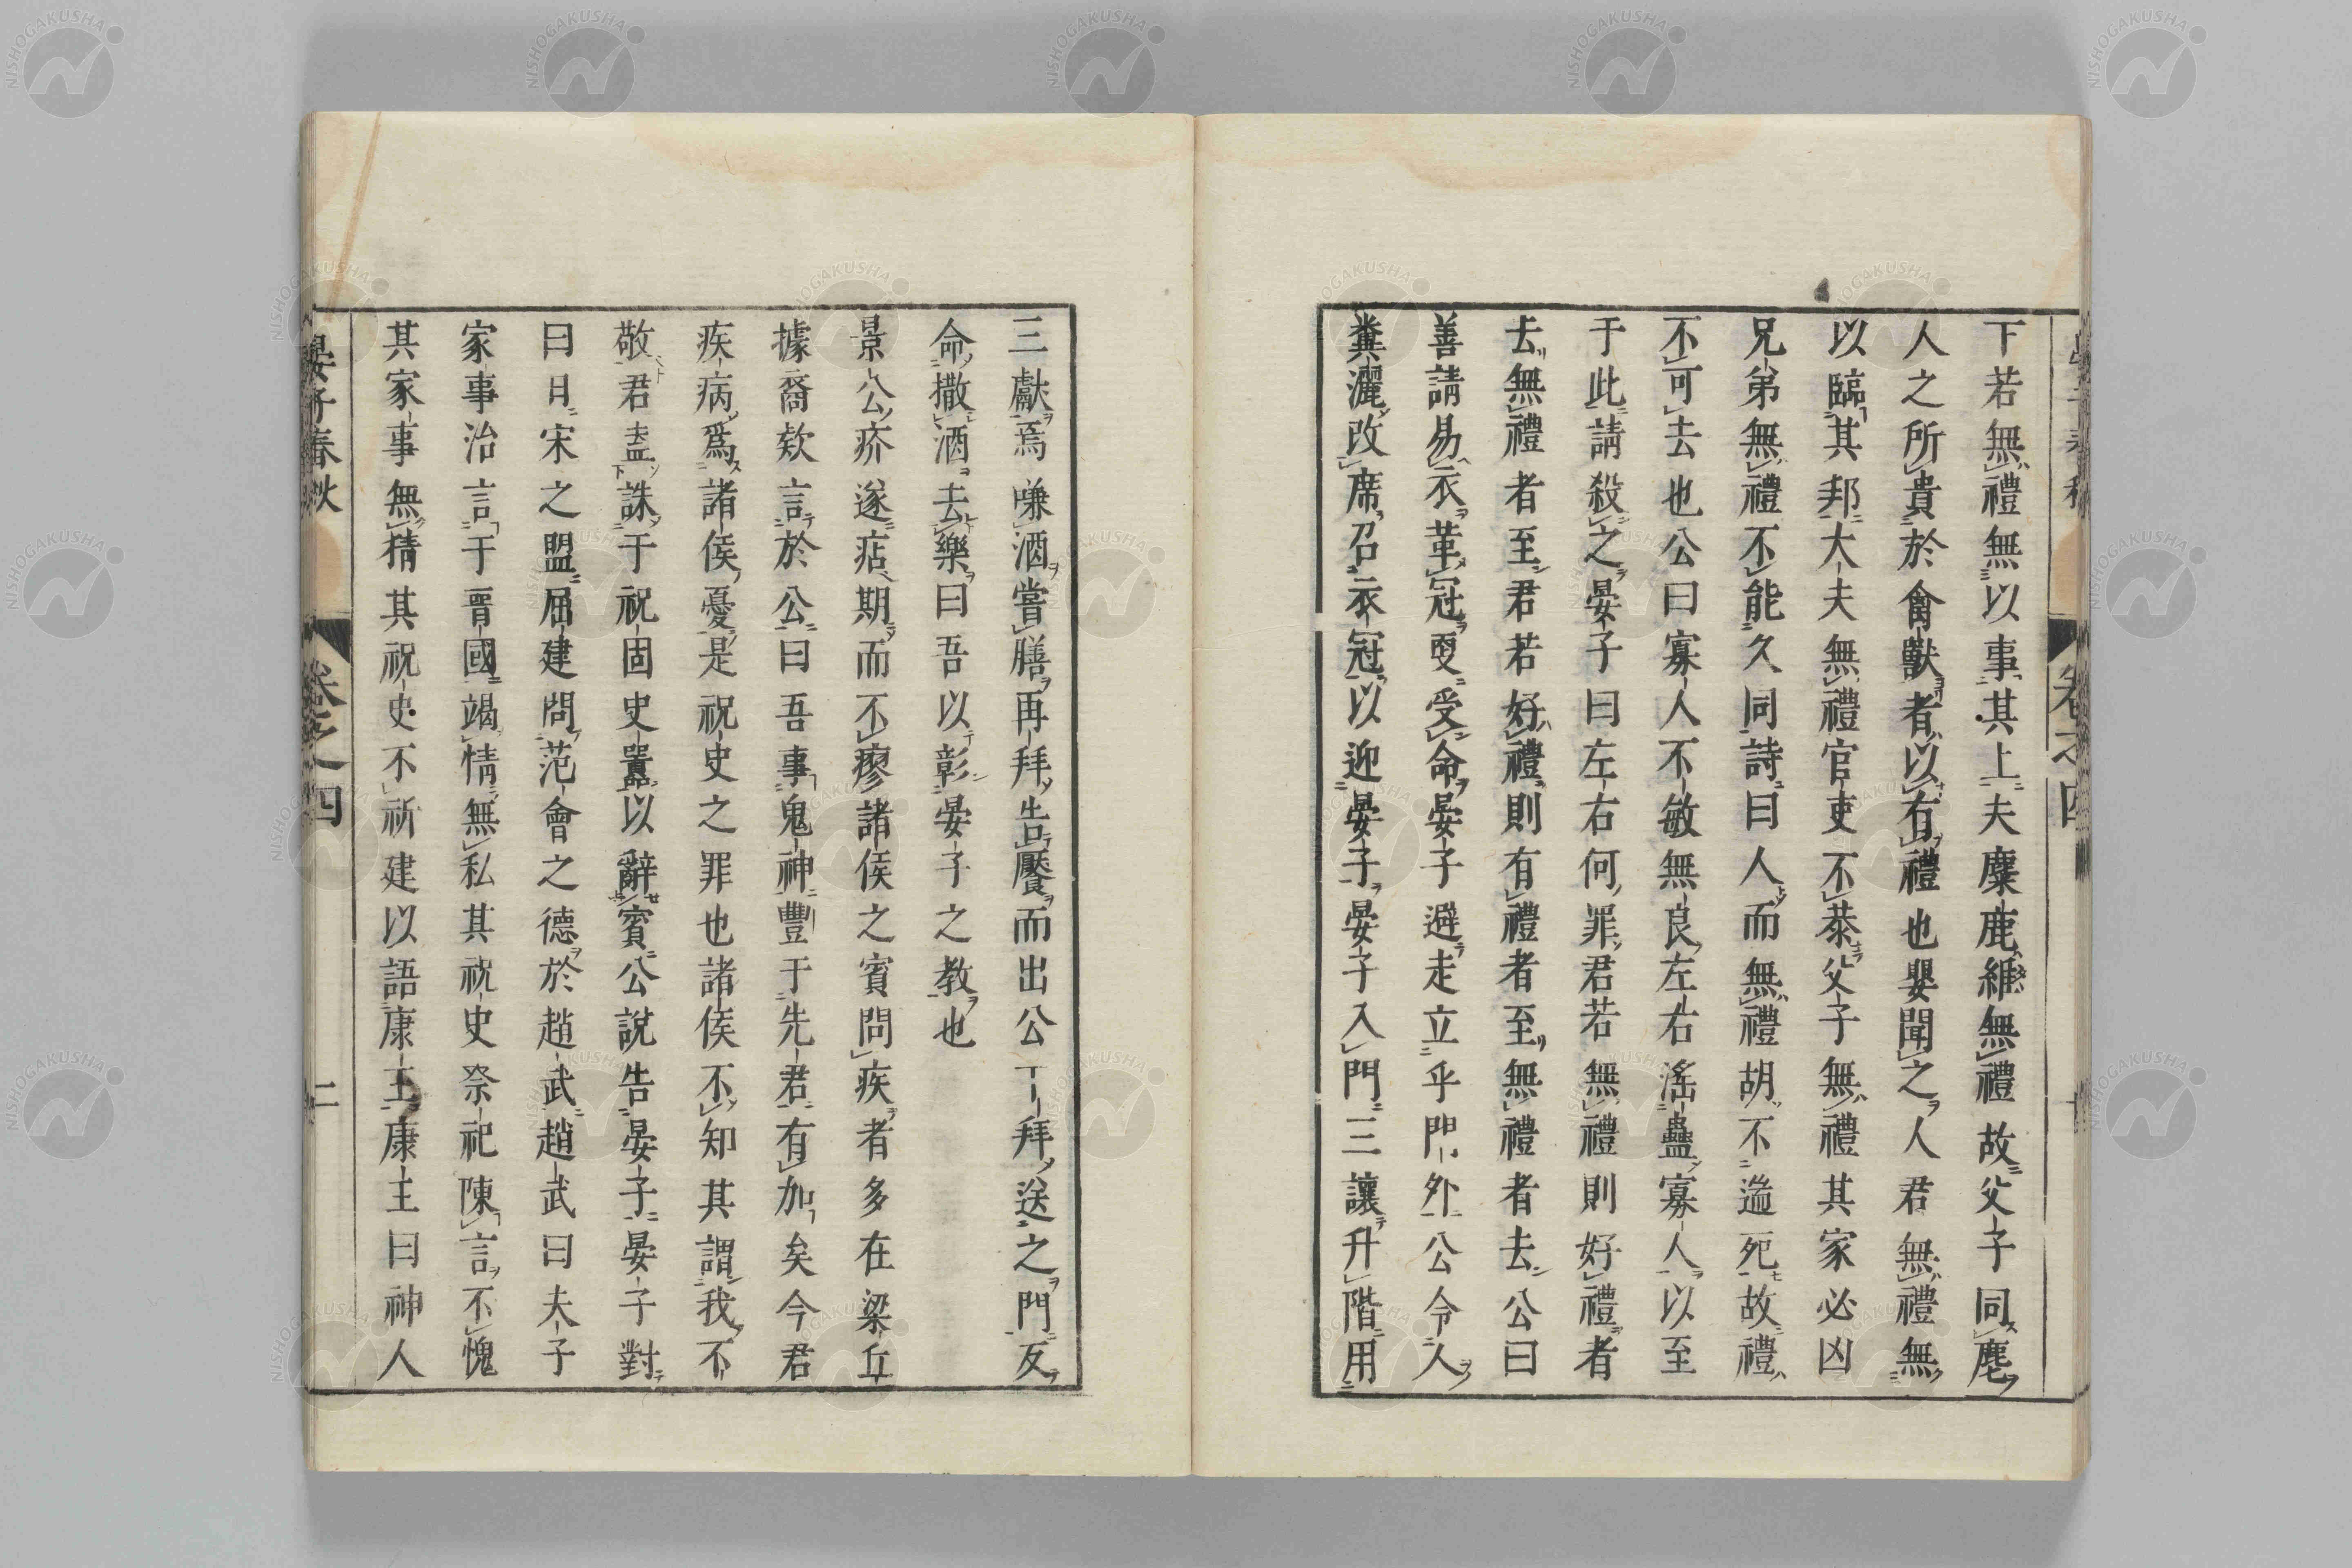 下若無禮無以事其上夫麋鹿維無禮故父子同麀
人之所貴於禽獸者以有禮也嬰聞之人君無禮無
以臨其邦大夫無禮官吏不恭父子無禮其家必凶
兄弟無禮不能久同詩曰人而無禮胡不遄死故禮
不可去也公曰寡人不敏無良左右淫蠱寡人以至
于此請殺之晏子曰左右何罪君若無禮則好禮者
去無禮者至君若好禮則有禮者至無禮者去公曰
善請易衣革冠更受命晏子避走立乎門外公令人
糞灑改席召衣冠以迎晏子晏子入門三讓升階用
三獻焉嗛酒嘗膳再拜告饜而出公下拜送之門反
命撤酒去樂曰吾以彰晏子之教也
景公疥遂痁期而不瘳諸侯之賓問疾者多在梁丘
據裔款言於公曰吾事鬼神豐于先君有加矣今君
疾病爲諸侯憂是祝史之罪也諸侯不知其謂我不
敬君盍誅于祝固史嚚以辭賓公說告晏子晏子對
曰日宋之盟屈建問范會之德於趙武趙武曰夫子
家事治言于晉國竭情無私其祝史祭祀陳言不愧
其家事無猜其祝史不祈建以語康王康王曰神人
晏子春秋
卷之四
二
NISHOGAKUSHA